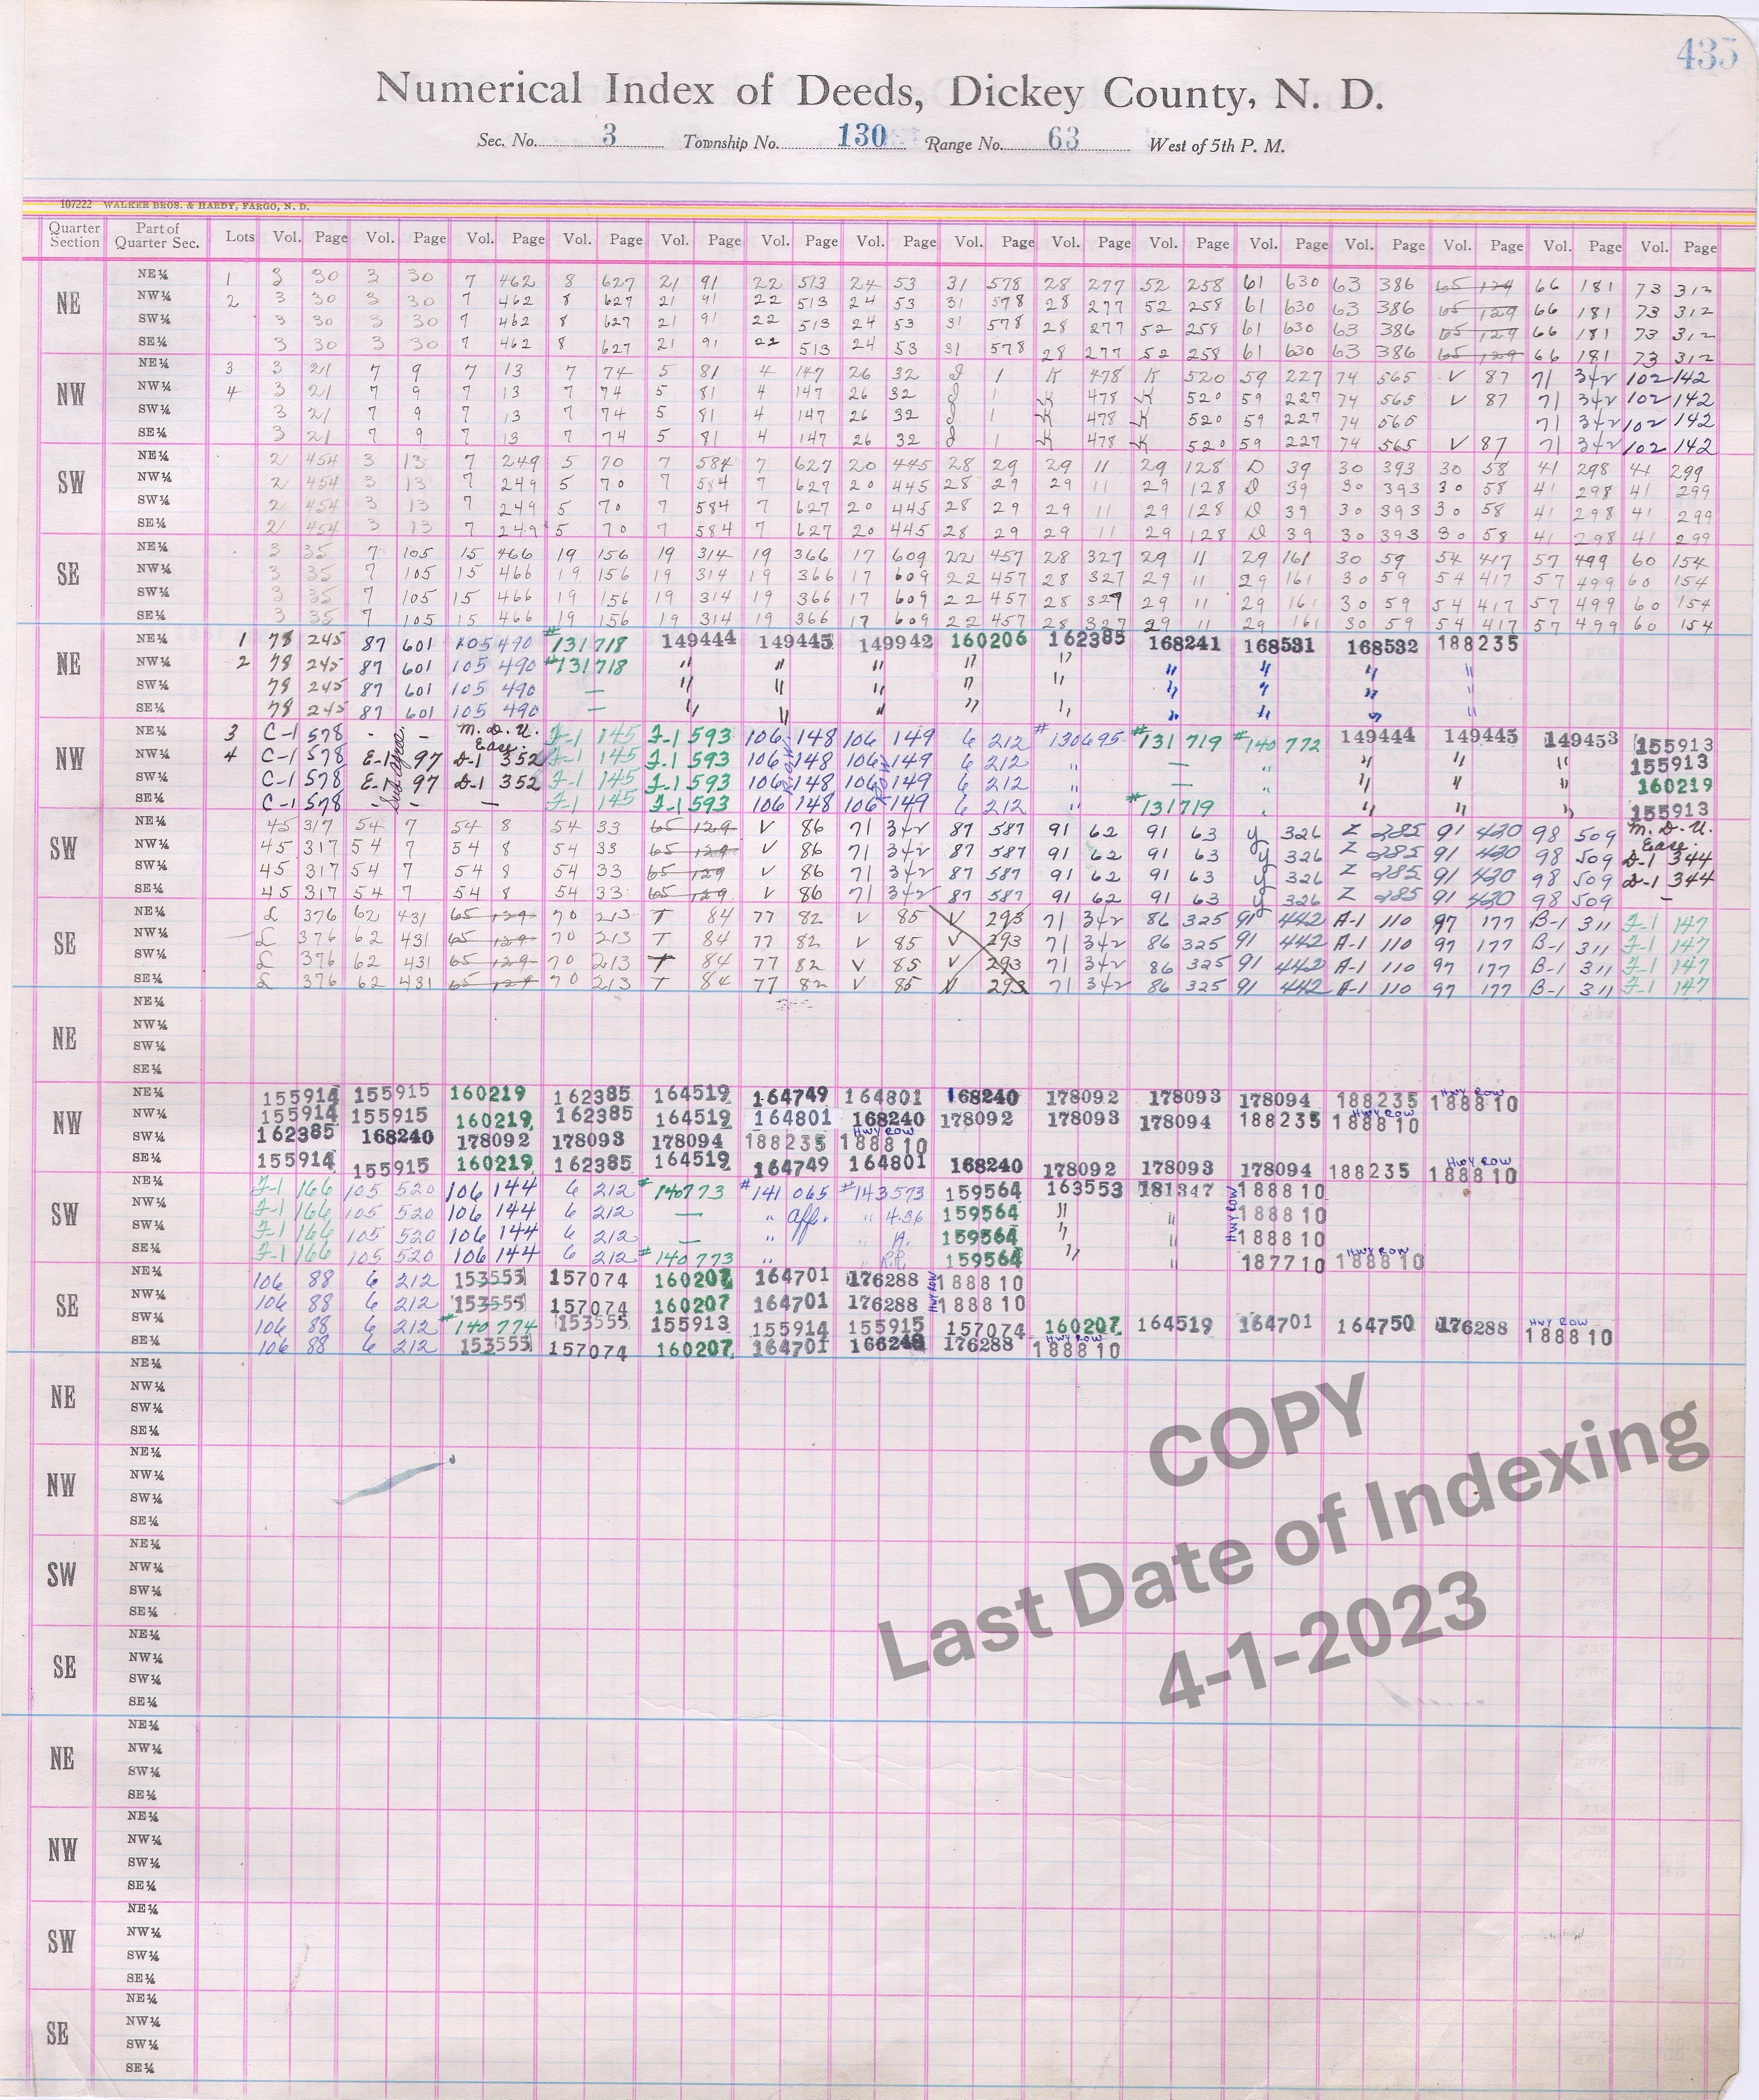 435
Numerical Index of Deeds, Dickey County, N. D.
Sec. No. 3 Township No. 130 Range No. 63 West of 5th P. M.
107222 WALKER BROS. & HARDY, FARGO, N. D.
Quarter Section Part of Quarter Sec. Lots Vol. Page Vol. Page Vol. Page Vol. Page Vol. Page Vol. Page Vol. Page Vol. Page Vol. Page Vol. Page Vol. Page Vol. Page Vol. Page Vol. Page Vol. Page
NE
NE¼ 1 3 30 3 30 7 462 8 627 21 91 22 513 24 53 31 578 28 277 52 258 61 630 63 386 65 129 66 181 73 312
NW¼ 2 3 30 3 30 7 462 8 627 21 91 22 513 24 53 31 578 28 277 52 258 61 630 63 386 65 129 66 181 73 312
SW¼ 3 30 3 30 7 462 8 627 21 91 22 513 24 53 31 578 28 277 52 258 61 630 63 386 65 129 66 181 73 312
SE¼ 3 30 3 30 7 462 8 627 21 91 22 513 24 53 31 578 28 277 52 258 61 630 63 386 65 129 66 181 73 312
NW
NE¼ 3 3 21 7 9 7 13 7 74 5 81 4 147 26 32 J 1 K 478 K 520 59 227 74 565 V 87 71 342 102 142
NW¼ 4 3 21 7 9 7 13 7 74 5 81 4 147 26 32 J 1 K 478 K 520 59 227 74 565 V 87 71 342 102 142
SW¼ 3 21 7 9 7 13 7 74 5 81 4 147 26 32 J 1 K 478 K 520 59 227 74 565 71 342 102 142
SE¼ 3 21 7 9 7 13 7 74 5 81 4 147 26 32 J 1 K 478 K 520 59 227 74 565 V 87 71 342 102 142
SW
NE¼ 2 454 3 13 7 249 5 70 7 584 7 627 20 445 28 29 29 11 29 128 D 39 30 393 30 58 41 298 41 299
NW¼ 2 454 3 13 7 249 5 70 7 584 7 627 20 445 28 29 29 11 29 128 D 39 30 393 30 58 41 298 41 299
SW¼ 2 454 3 13 7 249 5 70 7 584 7 627 20 445 28 29 29 11 29 128 D 39 30 393 30 58 41 298 41 299
SE¼ 2 454 3 13 7 249 5 70 7 584 7 627 20 445 28 29 29 11 29 128 D 39 30 393 30 58 41 298 41 299
SE
NE¼ 3 35 7 105 15 466 19 156 19 314 19 366 17 609 22 457 28 327 29 11 29 161 30 59 54 417 57 499 60 154
NW¼ 3 35 7 105 15 466 19 156 19 314 19 366 17 609 22 457 28 327 29 11 29 161 30 59 54 417 57 499 60 154
SW¼ 3 35 7 105 15 466 19 156 19 314 19 366 17 609 22 457 28 327 29 11 29 161 30 59 54 417 57 499 60 154
SE¼ 3 35 7 105 15 466 19 156 19 314 19 366 17 609 22 457 28 327 29 11 29 161 30 59 54 417 57 499 60 154
NE
NE¼ 1 78 245 87 601 105 490 #131718 149444 149445 149942 160206 162385 168241 168531 168532 188235
NW¼ 2 78 245 87 601 105 490 #131718 " " " " " " " " "
SW¼ 78 245 87 601 105 490 — " " " " " " " " "
SE¼ 78 245 87 601 105 490 — " " " " " " " " "
NW
NE¼ 3 C-1 578 - - M. D. U. Ease. J-1 145 J-1 593 106 148 106 149 6 212 #130695 #131 719 #140 772 149444 149445 149453 155913
NW¼ 4 C-1 578 E-1 97 D-1 352 J-1 145 J-1 593 106 148 106 149 6 212 " — " " " " 155913
SW¼ C-1 578 E-1 97 D-1 352 J-1 145 J-1 593 106 148 106 149 6 212 " — " " " " 160219
SE¼ C-1 578 - - — J-1 145 J-1 593 106 148 106 149 6 212 " #131719 " " " " 155913
SW
NE¼ 45 317 54 7 54 8 54 33 65 129 V 86 71 342 87 587 91 62 91 63 Y 326 Z 285 91 430 98 509 M. D. U. Ease.
NW¼ 45 317 54 7 54 8 54 33 65 129 V 86 71 342 87 587 91 62 91 63 Y 326 Z 285 91 430 98 509 D-1 344
SW¼ 45 317 54 7 54 8 54 33 65 129 V 86 71 342 87 587 91 62 91 63 Y 326 Z 285 91 430 98 509 D-1 344
SE¼ 45 317 54 7 54 8 54 33 65 129 V 86 71 342 87 587 91 62 91 63 Y 326 Z 285 91 430 98 509 —
SE
NE¼ L 376 62 431 65 129 70 213 T 84 77 82 V 85 V 293 71 342 86 325 91 442 A-1 110 97 177 B-1 311 J-1 147
NW¼ L 376 62 431 65 129 70 213 T 84 77 82 V 85 V 293 71 342 86 325 91 442 A-1 110 97 177 B-1 311 J-1 147
SW¼ L 376 62 431 65 129 70 213 T 84 77 82 V 85 V 293 71 342 86 325 91 442 A-1 110 97 177 B-1 311 J-1 147
SE¼ L 376 62 431 65 129 70 213 T 84 77 82 V 85 V 293 71 342 86 325 91 442 A-1 110 97 177 B-1 311 J-1 147
NE
NE¼
NW¼
SW¼
SE¼
NW
NE¼ 155914 155915 160219 162385 164519 164749 164801 168240 178092 178093 178094 188235 HWY ROW 188810
NW¼ 155914 155915 160219 162385 164519 164801 168240 178092 178093 178094 188235 HWY ROW 188810
SW¼ 162385 168240 178092 178093 178094 188235 HWY ROW 188810
SE¼ 155914 155915 160219 162385 164519 164749 164801 168240 178092 178093 178094 188235 HWY ROW 188810
SW
NE¼ J-1 166 105 520 106 144 6 212 #140773 #141 065 #143573 159564 163553 181347 HWY ROW 188810
NW¼ J-1 166 105 520 106 144 6 212 — " Aff. " 4.36 159564 " " 188810
SW¼ J-1 166 105 520 106 144 6 212 — " " A. 159564 " " 188810
SE¼ J-1 166 105 520 106 144 6 212 #140773 " R.R. 159564 " " 187710 HWY ROW 188810
SE
NE¼ 106 88 6 212 153555 157074 160207 164701 176288 HWY ROW 188810
NW¼ 106 88 6 212 153555 157074 160207 164701 176288 188810
SW¼ 106 88 6 212 #140774 153555 155913 155914 155915 157074 160207 164519 164701 164750 176288 HWY ROW 188810
SE¼ 106 88 6 212 153555 157074 160207 164701 166248 176288 HWY ROW 188810
NE
NE¼
NW¼
SW¼
SE¼
NW
NE¼
NW¼
SW¼
SE¼
SW
NE¼
NW¼
SW¼
SE¼
SE
NE¼
NW¼
SW¼
SE¼
NE
NE¼
NW¼
SW¼
SE¼
NW
NE¼
NW¼
SW¼
SE¼
SW
NE¼
NW¼
SW¼
SE¼
SE
NE¼
NW¼
SW¼
SE¼
COPY
Last Date of Indexing
4-1-2023